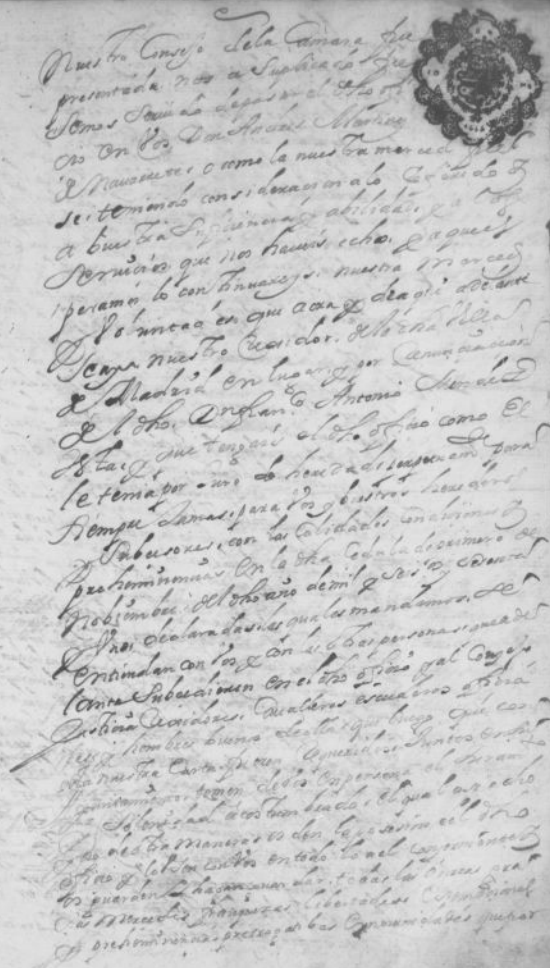 Nuestro Consejo de la Camara fue
presentada nos a suplicado fue
semos servido de passar el dho ofi
cio en vos Don Andres Martinez
de Navarrete, o como la nuestra merced
se; teniendo consideracion a lo referido y
a buestra suficiencia y abilidad, y a los
servicios que nos haveis echo, y a que es
peramos lo continuareis. nuestra merced
y Voluntad es que aora y de aqui adelante
seays nuestro Regidor de la dha Villa
de Madrid en lugar y por renunciacion
del dho Antonio Mendez
y que tengais el dho officio como el
le tenia por juro de heredad perpetuam para
siempre jamas, para vos y buestros herederos
y subcesores, con las calidades condiciones y
prehiminencias en la dha Cedula de primero de
nobiembre del dho año de mil y seis y sesenta
y uno declaradas, las quales mandamos se
entiendan con vos y con las otras personas que ade
lante subcedieren en el dho officio y al Consejo
Justicia Regidores, Cavalleros escuderos officia
les y hombres buenos della que luego que con
esta nuestra Carta fueren requeridos juntos en su
Ayuntamiento tomen de vos en persona el juram
y solenidad acostumbrada, el qual asi echo
y no de otra manera os den la posesion del dho
oficio y en todo lo a el concerniente
os guarden y hagan guardar todas las onrras gra
cias mercedes franquezas libertades exempciones
prehiminencias prerrogatibas e ynmunidades que por